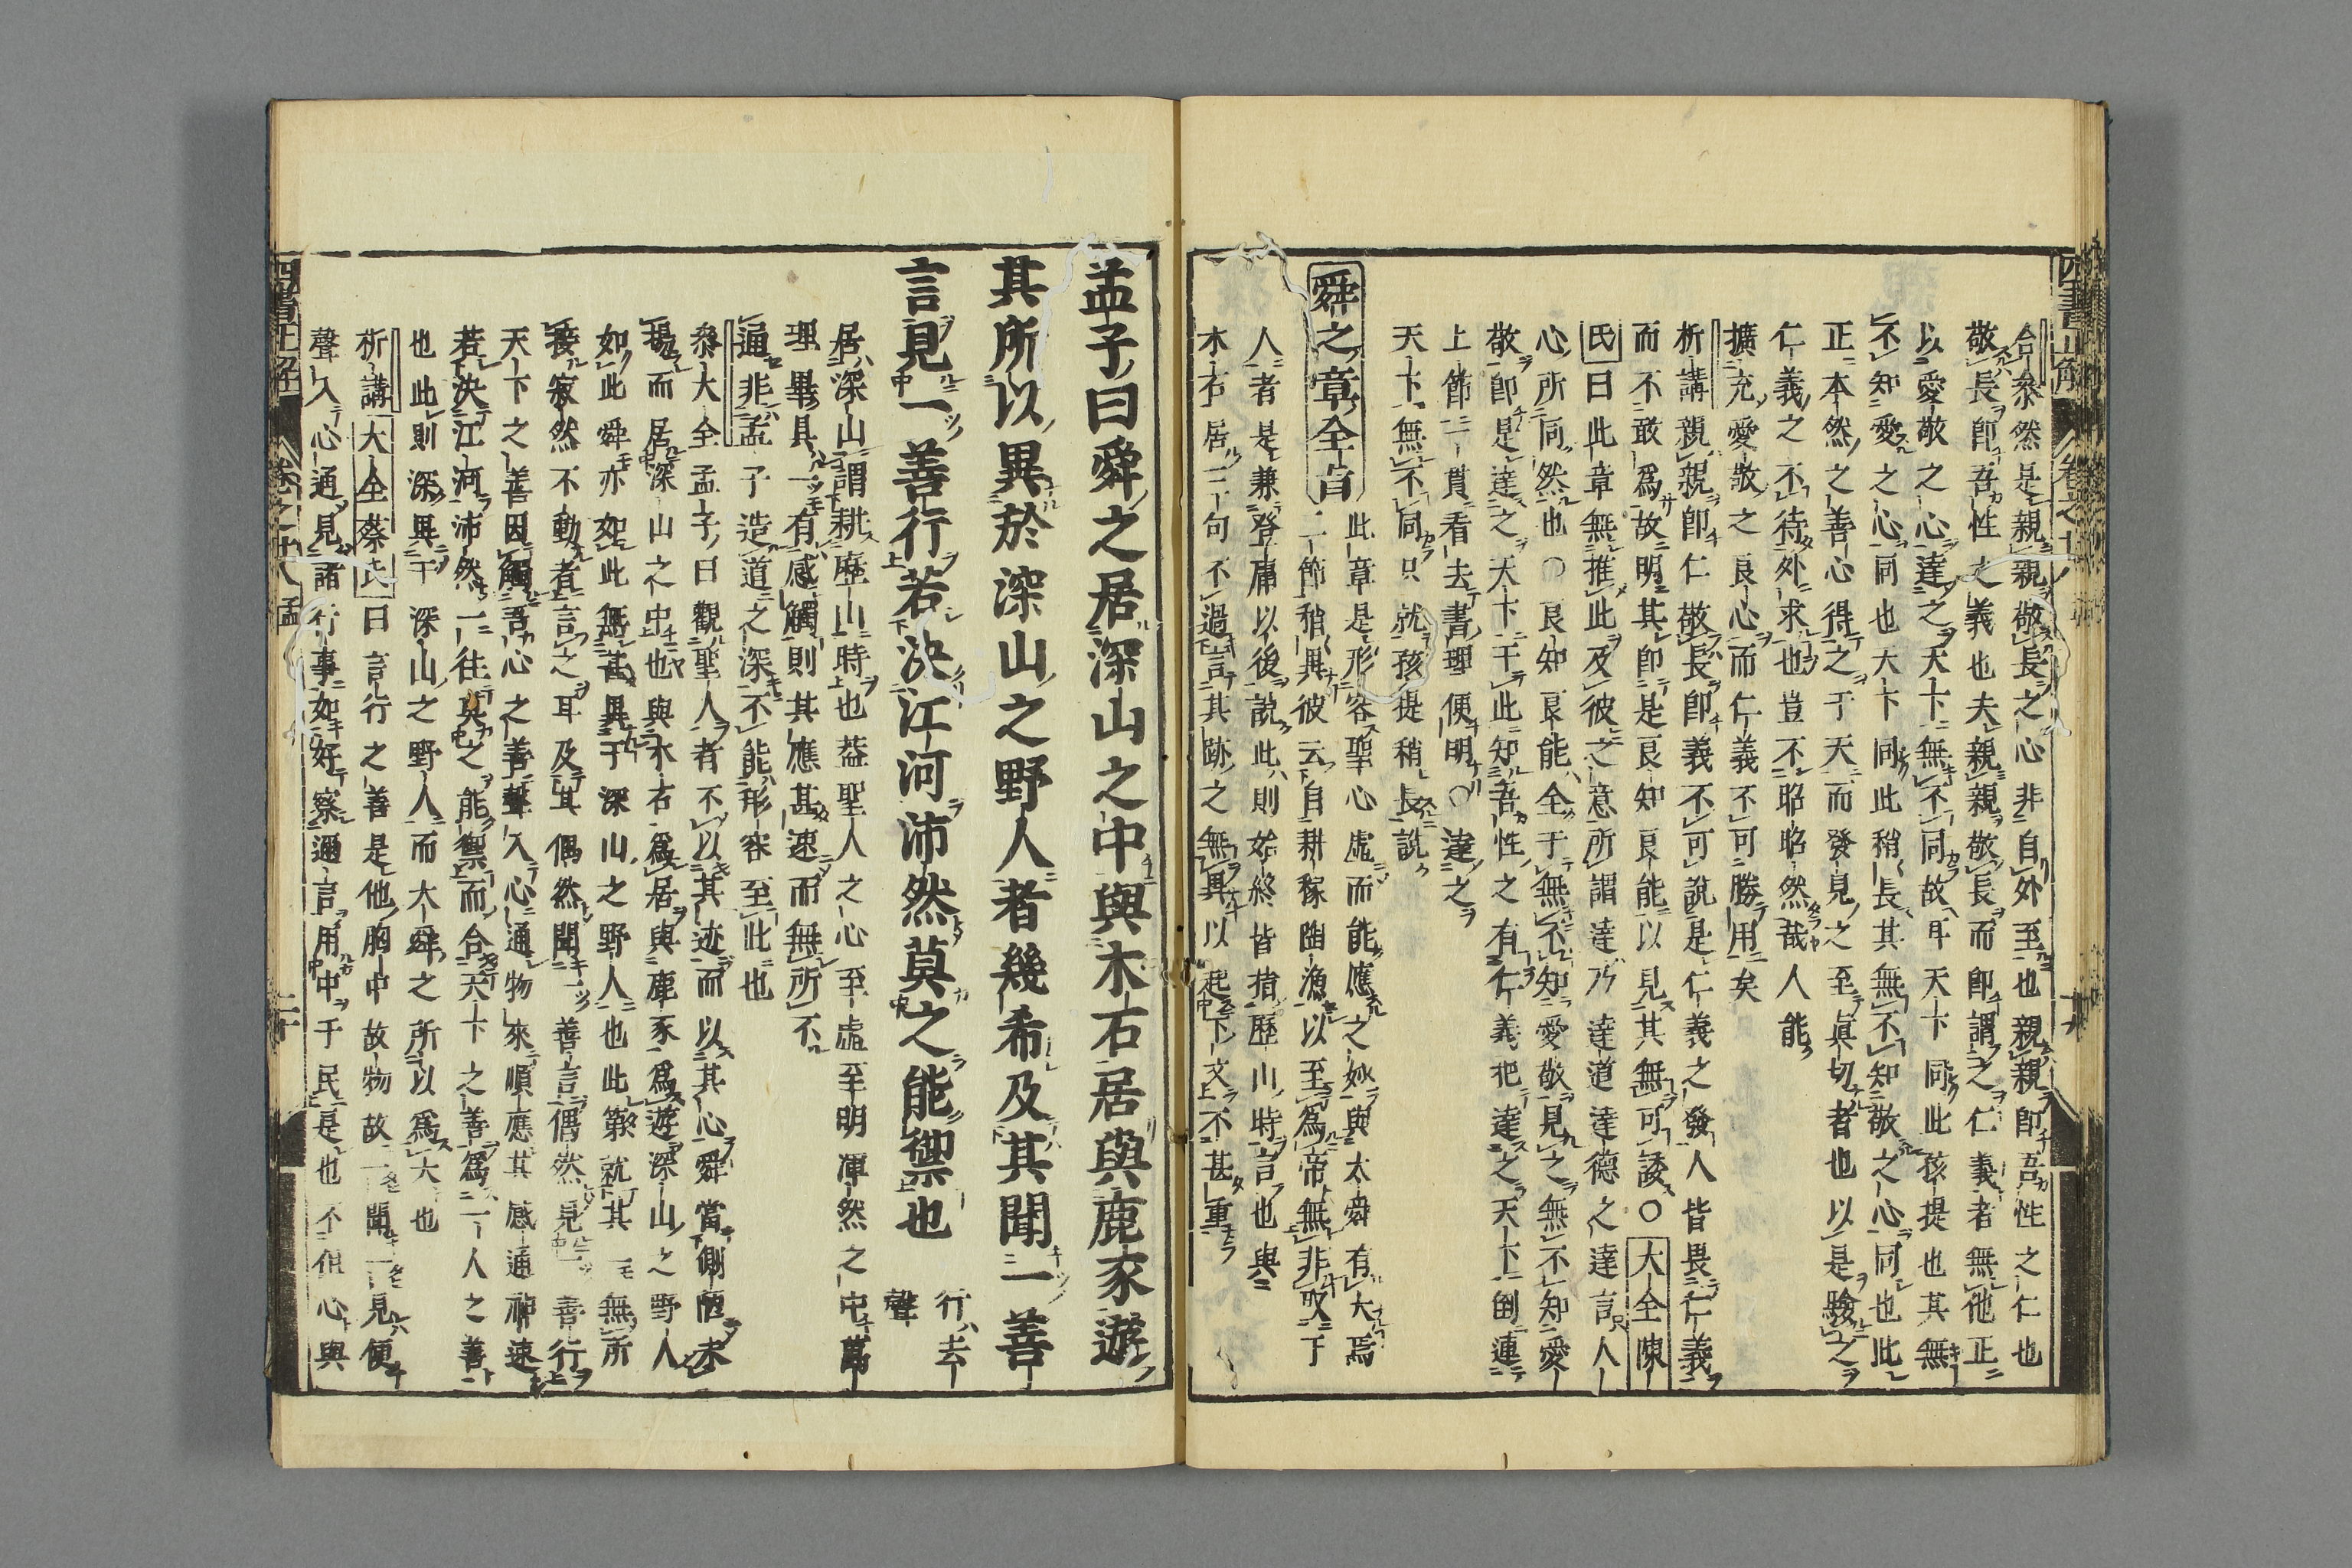 合參然是親親敬長之心非自外至也親親即吾性之仁也
敬長即吾性之義也夫親親敬長而即謂之仁義者無他正
以愛敬之心達之天下無不同故耳天下同此孩提也其無
不知愛之心同也天下同此稍長其無不知敬之心同也此
正本然之善心得之于天而發見之至眞切者也以是驗之
仁義之不待外求也豈不昭昭然哉人能
擴充愛敬之良心而仁義不可勝用矣
析講親親即仁敬長即義不可說是仁義之發人皆畏仁義
而不敢爲故明其即是良知良能以見其無可諉〇大全陳
氏曰此章無推此及彼之意所謂達乃達道達德之達言人
心所同然也〇良知良能全于無不知愛敬見之無不知愛
敬即是達之天下于此知吾性之有仁義把達之天下倒連
上節一貫看去書理便明〇達之
天下無不同只就孩提稍長說
舜之章全旨
此章是形容聖心虛而能應之妙與大舜有大焉
二節稍異彼云自耕稼陶漁以至爲帝無非取于
人者是兼登庸以後說此則始終皆指歷山時言也與
木石居二句不過言其跡之無異以起下文不甚重
孟子曰舜之居深山之中與木石居與鹿豕遊
其所以異於深山之野人者幾希及其聞一善
言見一善行若決江河沛然莫之能禦也
行去
聲
居深山謂耕歷山時也蓋聖人之心至虛至明渾然之中萬
理畢具一有感觸則其應甚速而無所不
通非孟子造道之深不能形容至此也
參大全孟子曰觀聖人者不以其迹而以其心舜當側陋未
揚而居深山之中也與木石爲居與鹿豕爲遊深山之野人
如此舜亦如此無甚異于深山之野人也此蔌就其無所
接寂然不動者言之耳及其偶然聞一善言偶然見一善行
天下之善因觸吾心之善聲入心通物來順應其感通神速
若決江河沛然一往莫之能禦而合天下之善爲一人之善
也此則深異于深山之野人而大舜之所以爲大也
析講大全蔡氏曰言行之善是他胸中故物故一聞一見便
聲入心通見諸行事如好察邇言用中于民是也不但心與
四書正解
卷之十八
孟
二十